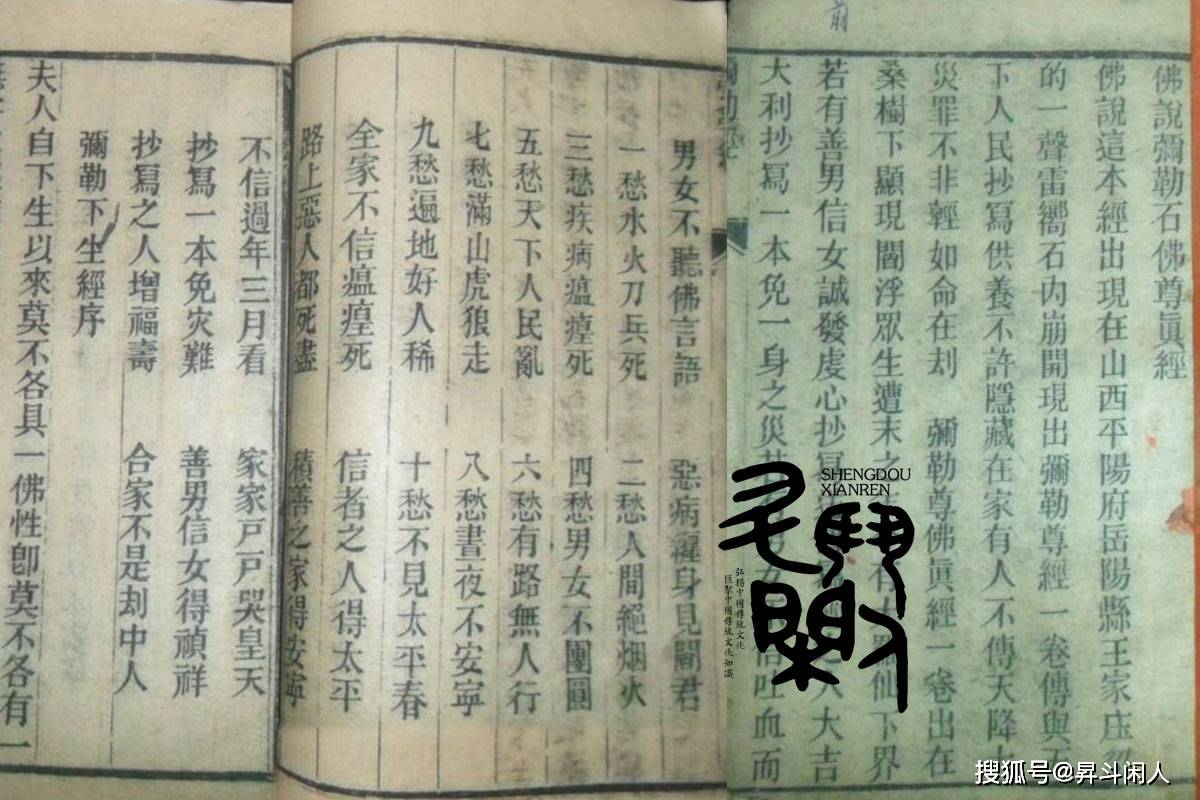 前
佛說彌勒石佛尊眞經
佛說這本經出現在山西平陽府岳陽縣王家庄
的一聲雷嚮石內崩開現出彌勒尊經一卷傳與
下人民抄寫供養不許隱藏在家有人不傳天降
災罪不非輕如命在刦　彌勒尊佛眞經一卷出在
桑樹下顯現閻浮眾生遭末之 有 仙下界
若有善男信女誠發虔心抄寫 人大吉
大利抄寫一本免一身之災 信吐血而
男女不聽佛言語　惡病纏身見閻君
一愁水火刀兵死　二愁人間絕烟火
三愁疾病瘟瘽死　四愁男女不團圓
五愁天下人民亂　六愁有路無人行
七愁滿山虎狼走　八愁晝夜不安寧
九愁遍地好人稀　十愁不見太平春
全家不信瘟瘽死　信者之人得太平
路上惡人都死盡　積善之家得安寧
不信過年三月看　家家戶戶哭皇天
抄寫一本免灾難　善男信女得禎祥
抄寫之人增福壽　合家不是刦中人
彌勒下生經序
夫人自下生以來莫不各具一佛性卽莫不各有一
SHENGDOU
XIANREN
弘揚中國傳統文化
巨聚中國傳統文化知識
搜狐号@昇斗闲人